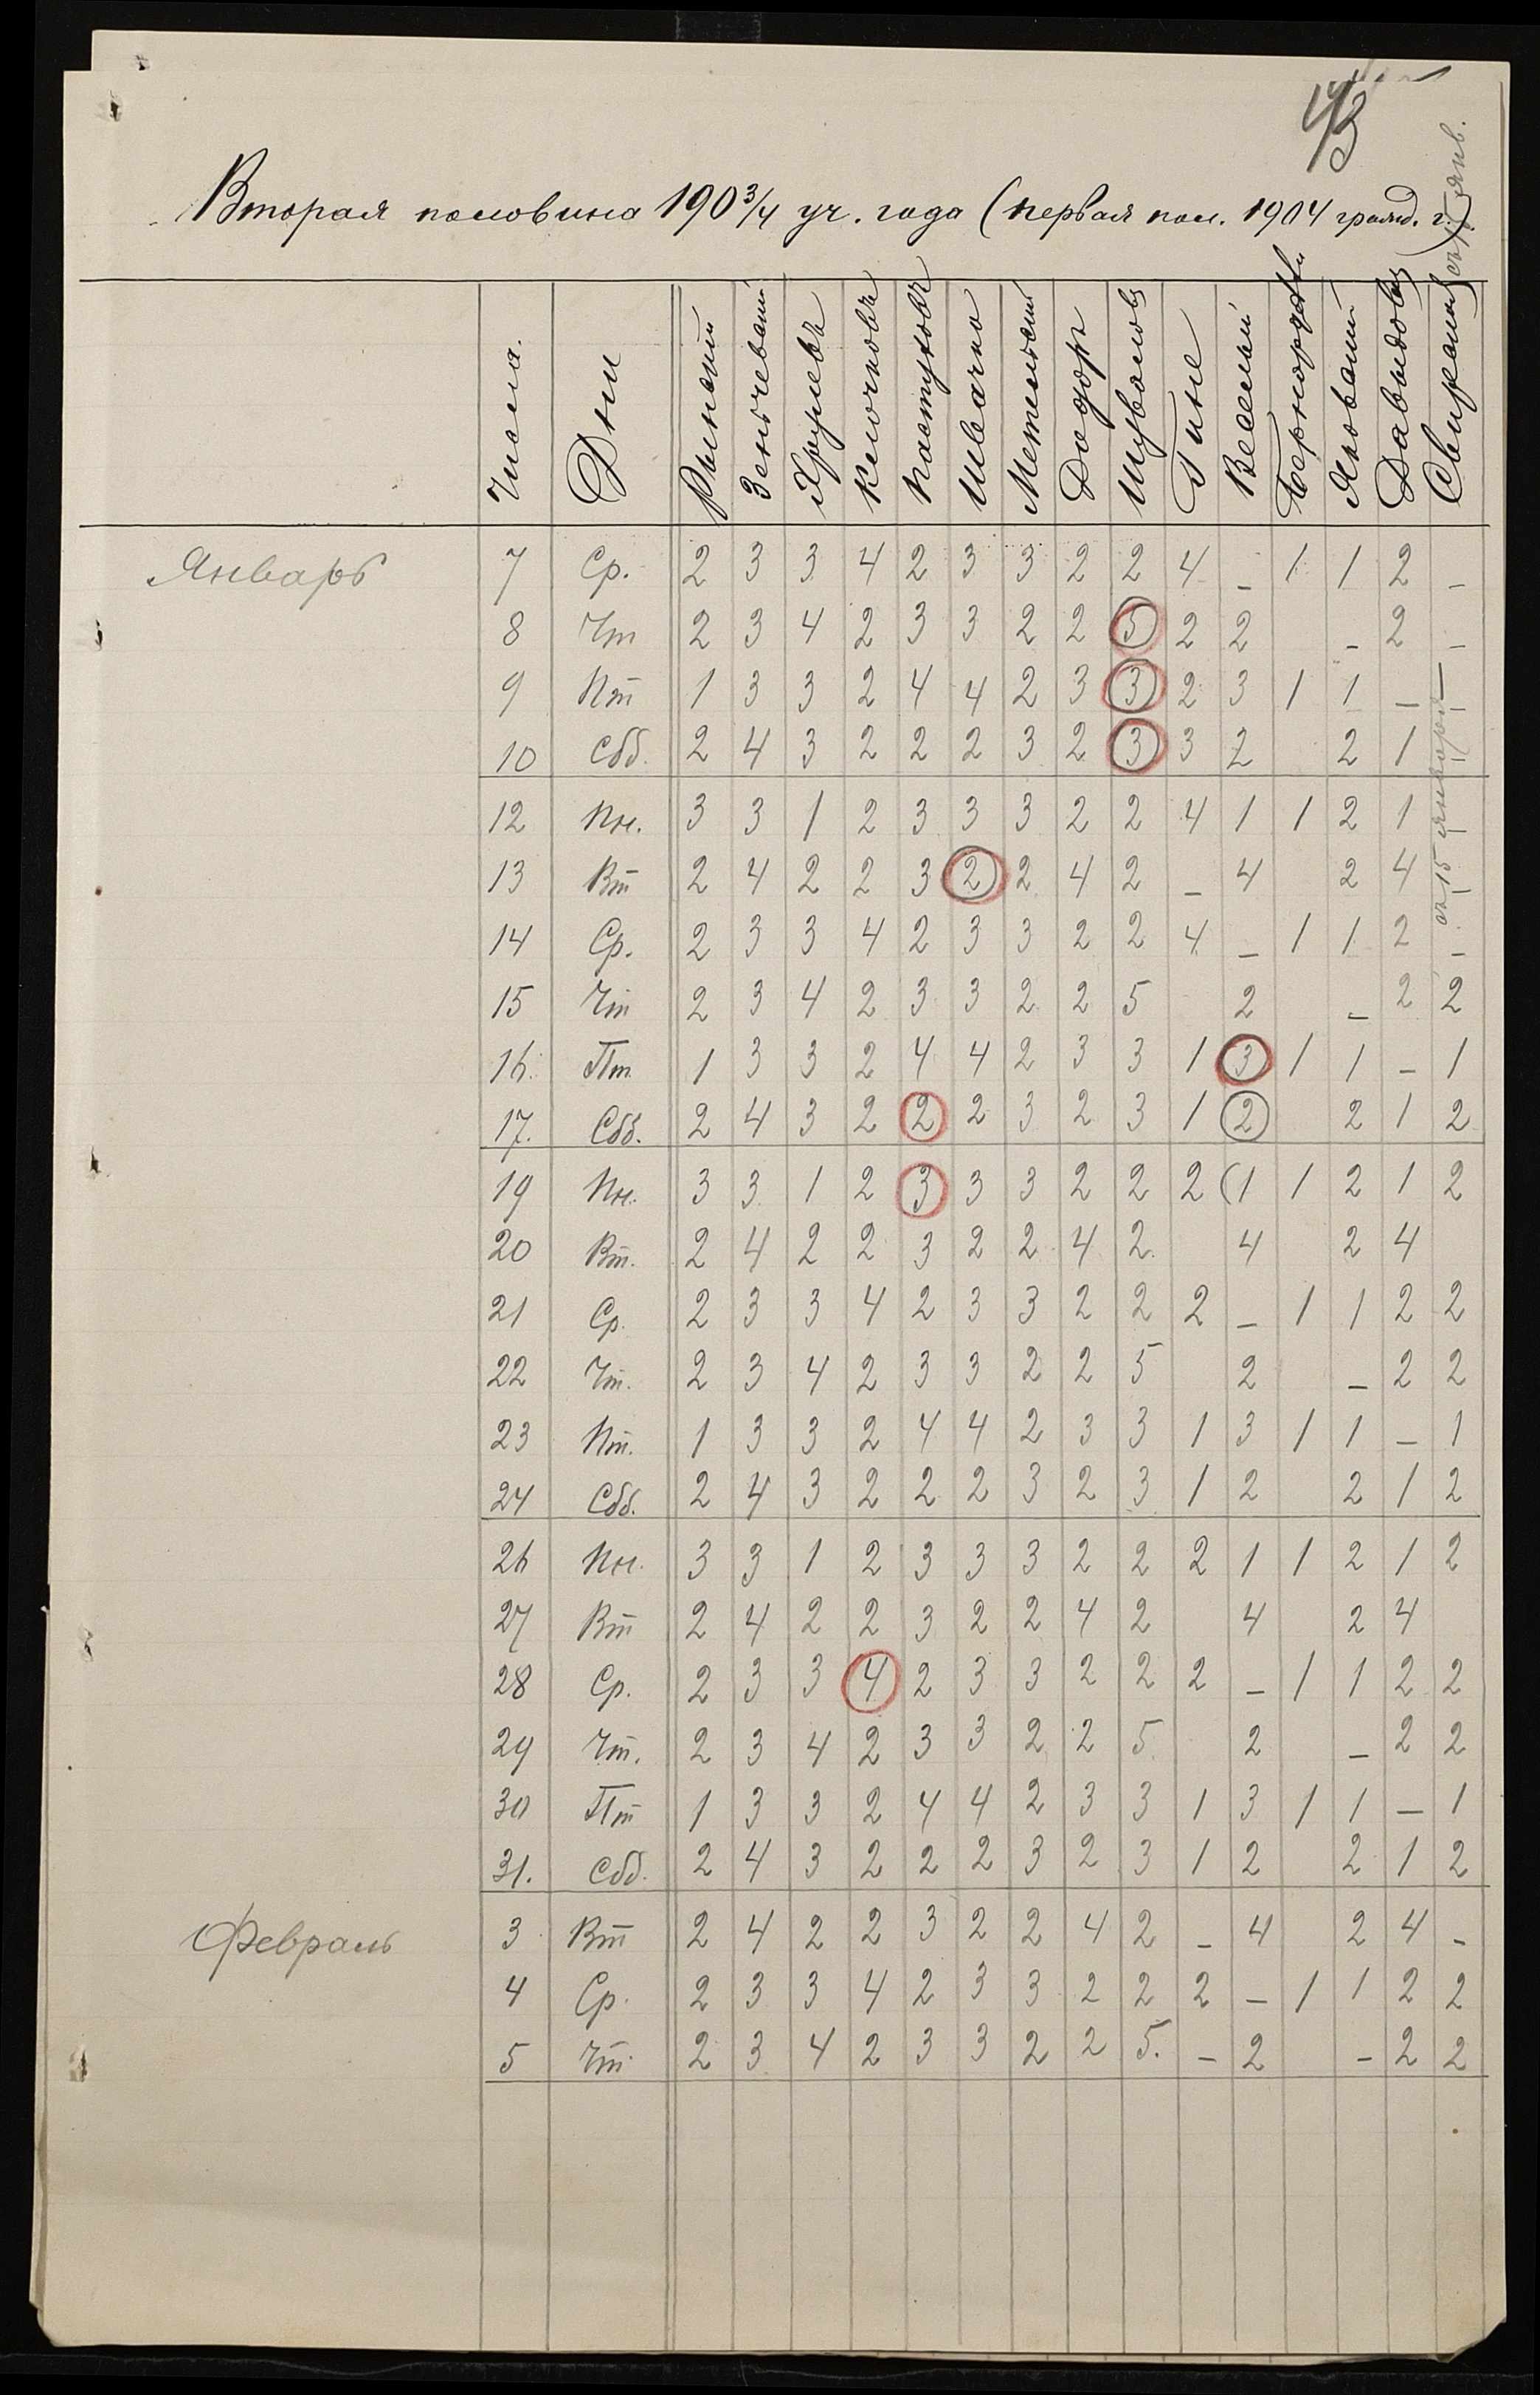 43
Вторая половина 190 3/4 уч. года (первая пол. 1904 гражд. г.)
съ 15 янв.
Числа. Дни Рынскій Зенчевскій Хруцевъ Клочковъ Пастуховъ Швачко Метельскій Додоръ Шувалов Гине Веселый Яновскій Давыдовъ
Январь 7 Ср. 2 3 3 4 2 3 3 2 2 4 – 1 1 2 –
8 Чт 2 3 4 2 3 3 2 2 5 2 2 – 2 –
9 Пт 1 3 3 2 4 4 2 3 3 2 3 1 1 – –
10 Сбб. 2 4 3 2 2 2 3 2 3 3 2 2 1 –
съ 15 января
12 Пн. 3 3 1 2 3 3 3 2 2 4 1 1 2 1 –
13 Вт 2 4 2 2 3 2 2 4 2 – 4 2 4 –
14 Ср. 2 3 3 4 2 3 3 2 2 4 – 1 1 2 –
15 Чт 2 3 4 2 3 3 2 2 5 2 – 2 2
16. Пт. 1 3 3 2 4 4 2 3 3 1 3 1 1 – 1
17. Сбб. 2 4 3 2 2 2 3 2 3 1 2 2 1 2
19 Пн. 3 3 1 2 3 3 3 2 2 2 (1 1 2 1 2
20 Вт. 2 4 2 2 3 2 2 4 2. 4 2 4
21 Ср. 2 3 3 4 2 3 3 2 2 2 – 1 1 2 2
22 Чт. 2 3 4 2 3 3 2 2 5 2 – 2 2
23 Пт. 1 3 3 2 4 4 2 3 3 1 3 1 1 – 1
24 Сбб. 2 4 3 2 2 2 3 2 3 1 2 2 1 2
26 Пн. 3 3 1 2 3 3 3 2 2 2 1 1 2 1 2
27 Вт 2 4 2 2 3 2 2 4 2 4 2 4
28 Ср. 2 3 3 4 2 3 3 2 2 2 – 1 1 2 2
29 Чт. 2 3 4 2 3 3 2 2 5. 2 – 2 2
30 Пт 1 3 3 2 4 4 2 3 3 1 3 1 1 – 1
31. Сбб. 2 4 3 2 2 2 3 2 3 1 2 2 1 2
Февраль 3 Вт 2 4 2 2 3 2 2 4 2 – 4 2 4 –
4 Ср. 2 3 3 4 2 3 3 2 2 2 – 1 1 2 2
5 Чт. 2 3 4 2 3 3 2 2 5. – 2 – 2 2